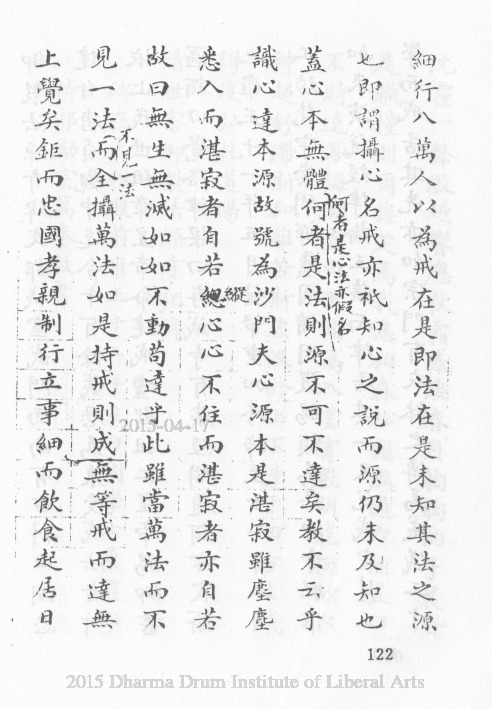 細行八萬人以為戒在是即法在是未知其法之源
也即謂攝心名戒亦祇知心之說而源仍未及知也
蓋心本無體何者是法則源不可不達矣教不云乎
何者是心法亦假名
識心達本源故號為沙門夫心源本是湛寂雖塵塵
悉入而湛寂者自若總心心不住而湛寂者亦自若
縱
故曰無生無滅如如不動苟達乎此雖當萬法而不
見一法而全攝萬法如是持戒則成無等戒而達無
不見一法
上覺矣鉅而忠國孝親制行立事細而飲食起居日
2015-04-17
122
2015 Dharma Drum Institute of Liberal Arts